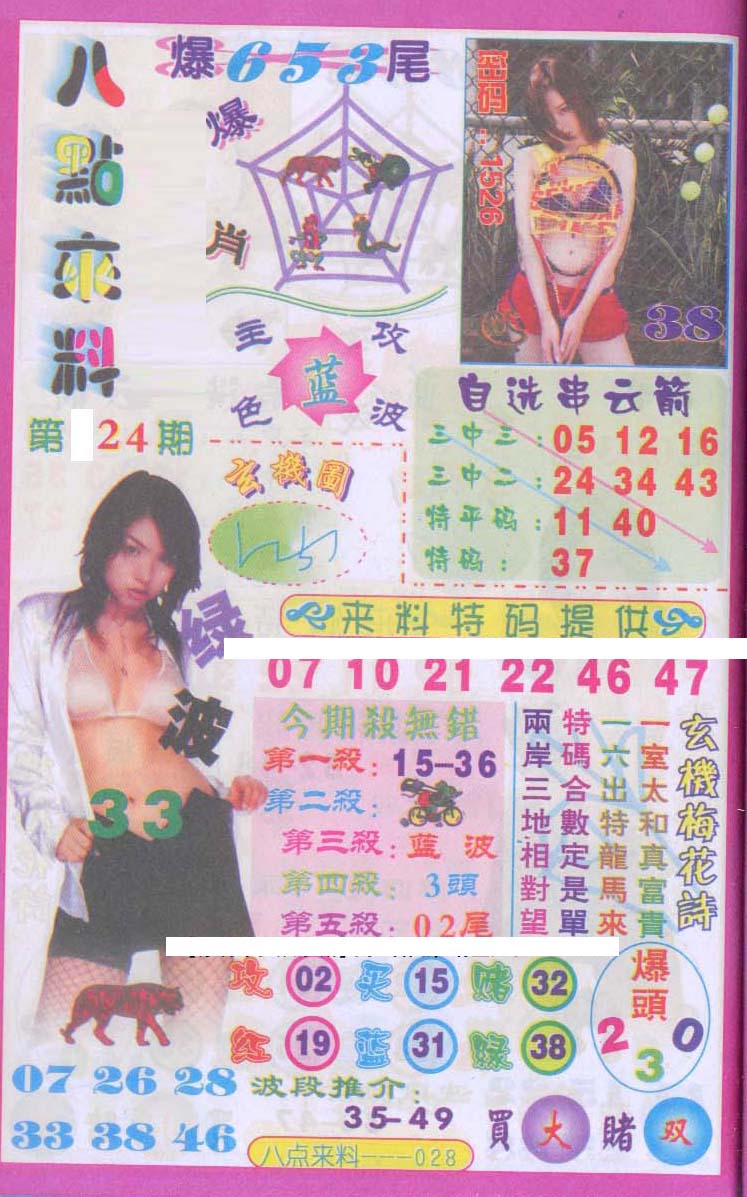 八點來料
第24期
爆653尾
爆肖
密码：1526
38
主攻
蓝
色波
自选串云箭
三中三：05 12 16
三中二：24 34 43
特平码：11 40
特码：37
玄機圖
来料特码提供
07 10 21 22 46 47
绿波
33
今期殺無錯
第一殺：15-36
第二殺：
第三殺：蓝波
第四殺：3頭
第五殺：02尾
玄機梅花詩
一室太和真富貴
一六出特龍馬來
特碼合數定是單
兩岸三地相對望
攻 02 买 15 赌 32
红 19 蓝 31 绿 38
爆頭
2 3 0
07 26 28
33 38 46
波段推介：
35-49
買大賭双
八点来料---028